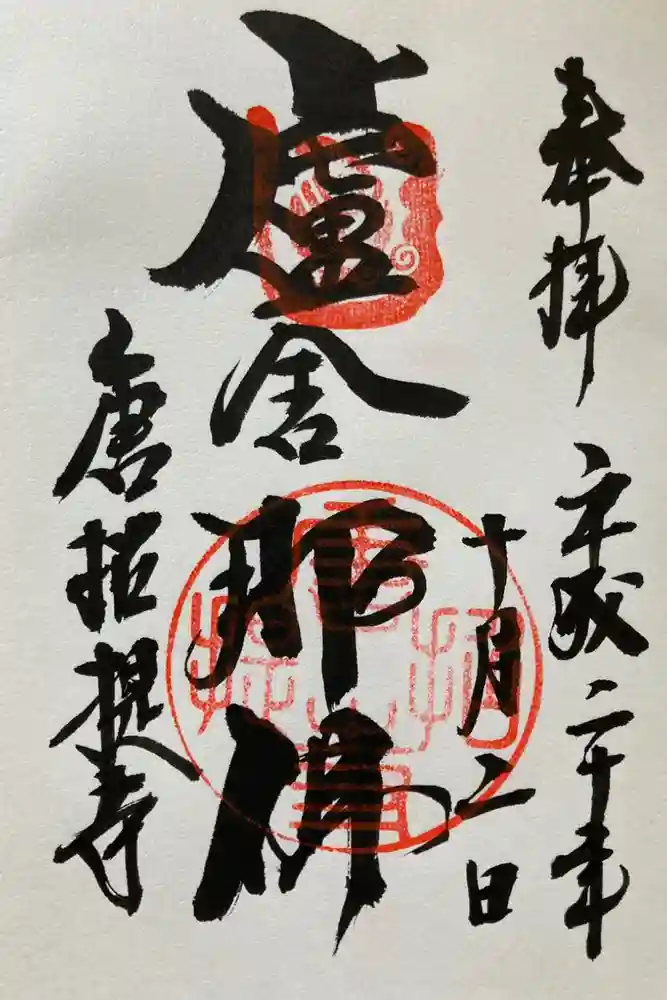 奉拝　平成二十年
十月二日
盧舎那佛
唐招提寺